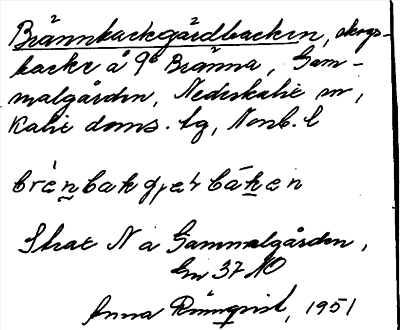 Brännbackgårdbacken, skogs-
backe å 9⁶ Bränna, Gam-
malgården, Nederkalix sn,
Kalix doms. tg, Nonb. l
brä́n̲bakgɟɛɽbäḱen
Strax N a Gammalgården,
Gn 37 NO
Anna Rönnqvist, 1951